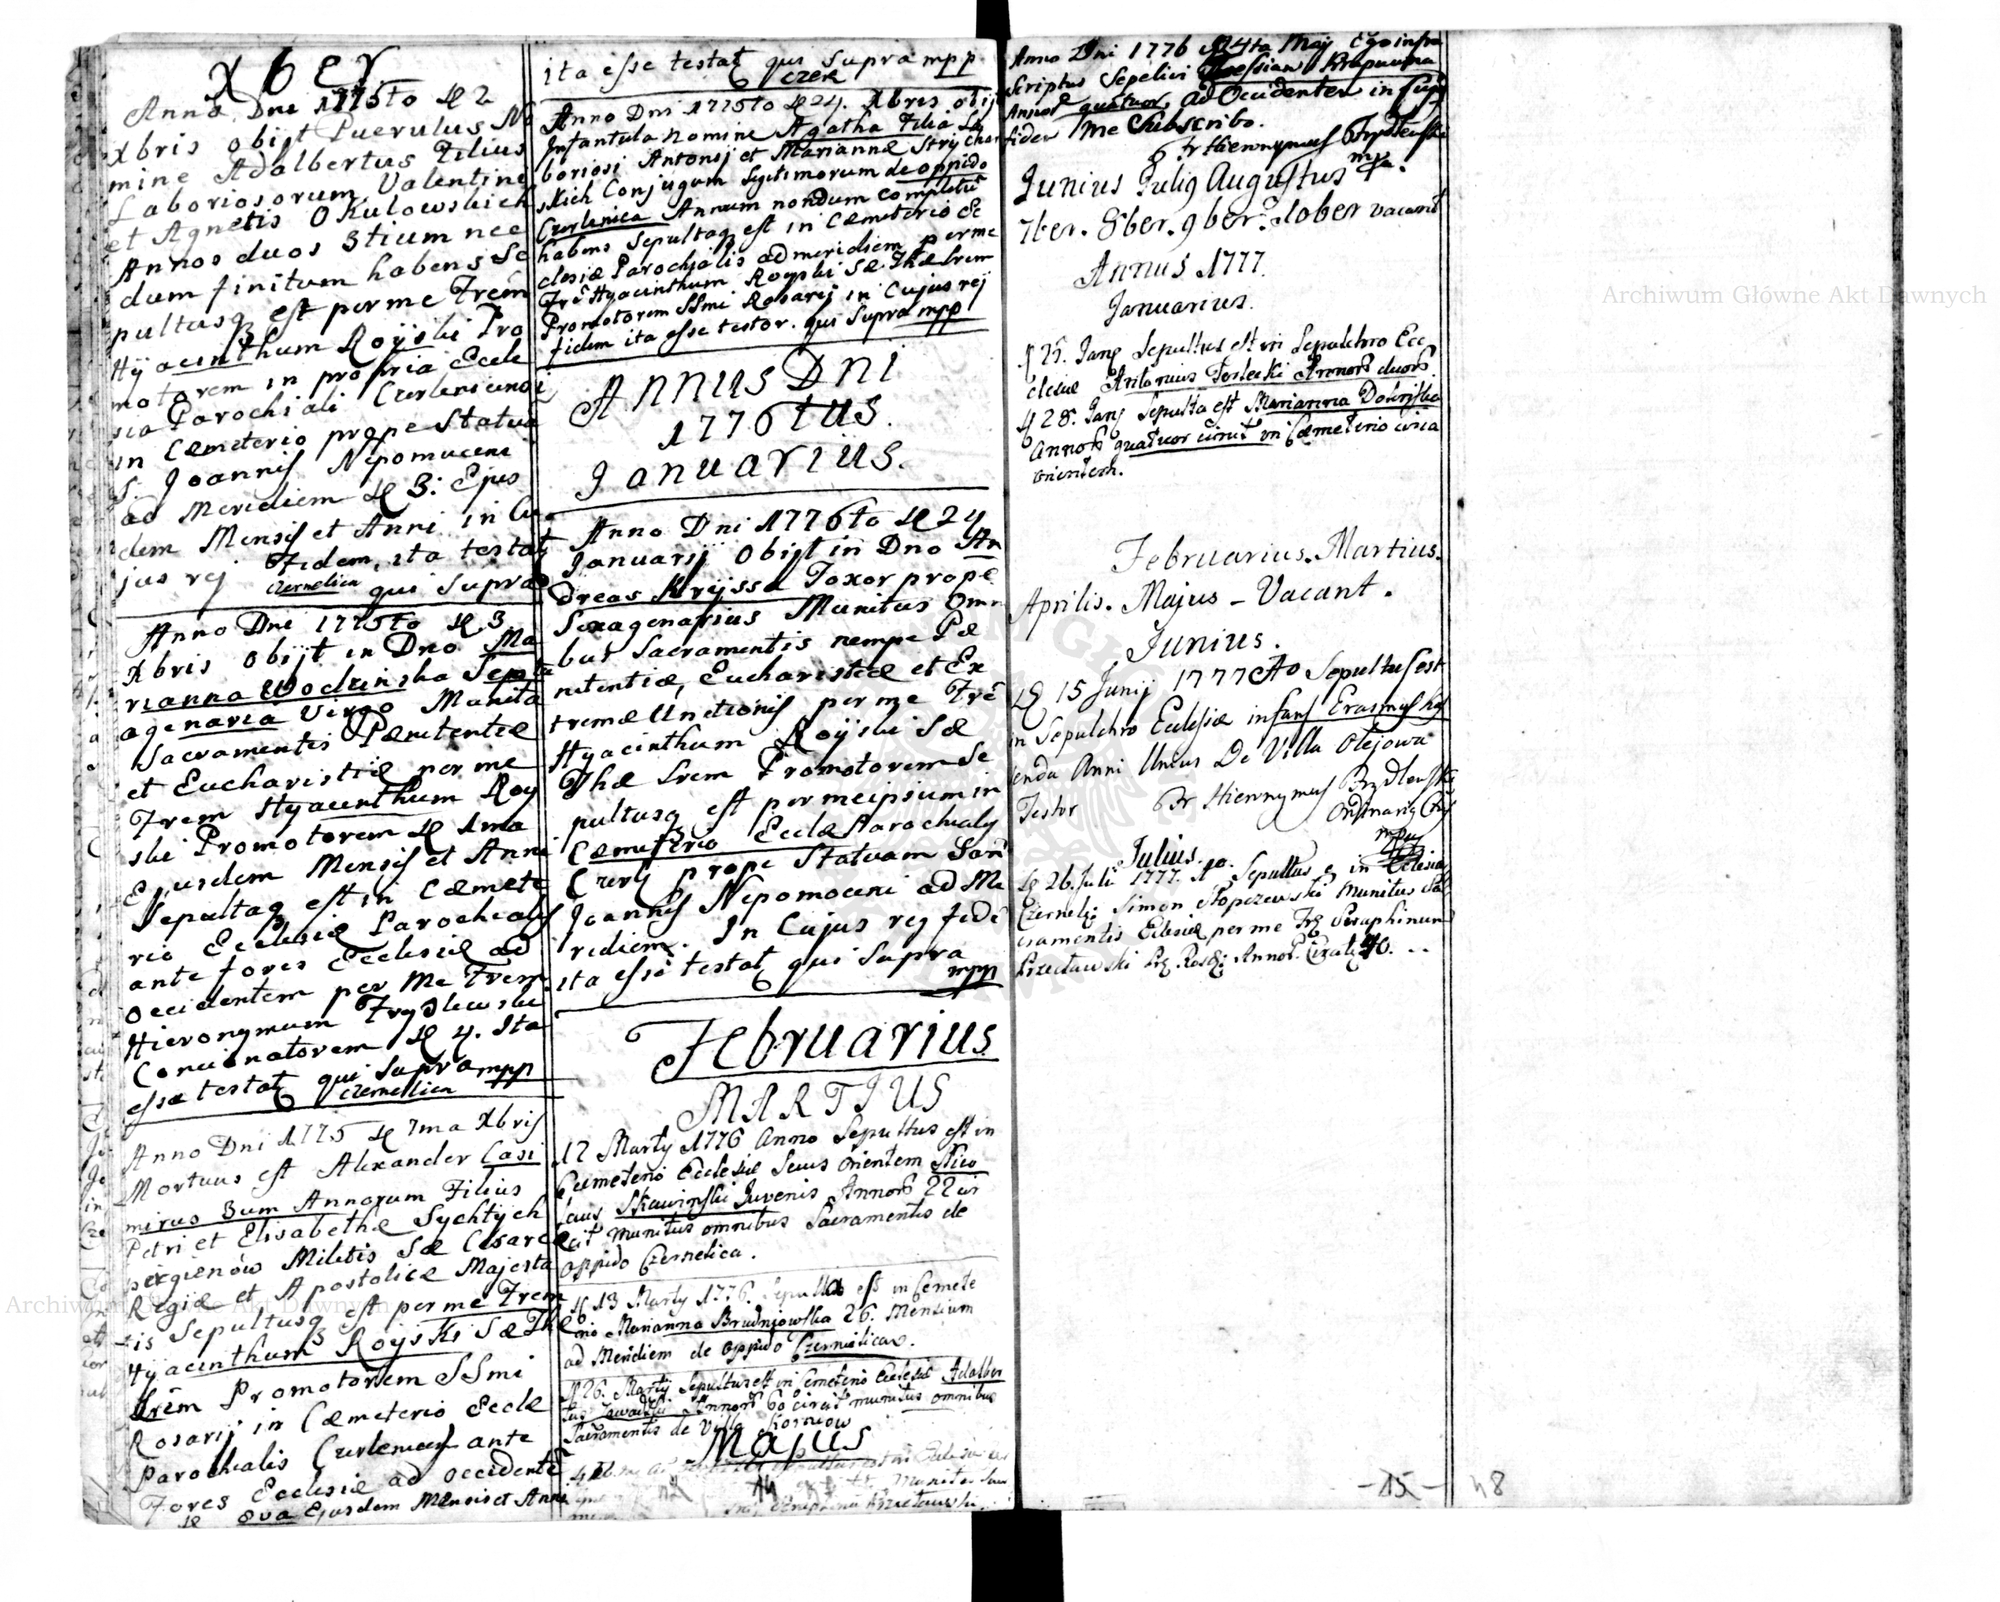 Xber
Anno Dni 1775to d 2
Xbris obijt Puerulus No
mine Adalbertus Filius
Laboriosorum Valentini
et Agnetis Okulowskich
Annos duos 3tium nec
dum finitum habens Se
pultusq est per me Frem
Hyacinthum Roijski Pro
motorem in propria Eccle
sia Parochiali Czerlenicensi
in Cæmeterio prope Statua
S. Joannis Nepomuceni
ad Meridiem d 3: Ejus
dem Mensis et Anni in Cu
jus rej Fidem, ita testat
Czernelica qui supra
Anno Dni 1775to d 3
Xbris obijt in Dno Ma
rianna Wodzinska Septu
agenaria Virgo Munita
Sacramentis Pænitentiæ
et Eucharistiæ per me
Frem Hyacinthum Roy
ski Promotorem d 1ma
Ejusdem Mensis et Anni
Sepultaq est in Cæmete
rio Ecclesiæ Parochialis
ante fores Ecclesiæ ad
Occidentem per Me Frem
Hieronymum Frydlewski
Concionatorem d 4. Ita
esse testat qui supra mpp
Czernellica
Anno Dni 1775 d 7ma Xbris
Mortuus est Alexander Casi
mirus 3um Annorum Filius
Petri et Elisabethæ Sychtych
Militis Sæ Cesareæ
Regiæ et Apostolicæ Majesta
tis Sepultusq est per me Frem
Hyacinthum Roijski Sæ Thæ
Lrem Promotorem SSmi
Rosarij in Cæmeterio Eccle
Parochialis ante
Fores Ecclesiæ ad Occidente
d 8va Ejusdem Mensis et Anni
ita esse testat qui supra mpp
Czer
Anno Dni 1775to d 24. Xbris obijt
Infantula Nomine Agatha Filia La
boriosi Antonij et Mariannæ Strychar
skich Conjugum legitimorum de oppido
Czerlenica Annum nondum completu
habens Sepultaq est in Cæmeterio Ec
clesiæ Parochialis ad meridiem per me
Fre Hyacinthum Royski Sæ Thæ Lrem
Promotorem SSmi Rosarij in Cujus rej
fidem ita esse testor. qui supra mpp
Annus Dni
1776tus.
Januariis.
Anno Dni 1776to d 24
Januarij Obijt in Dno An
dreas Kryssa Toxor prope
Sexagenarius Munitus Omni
bus Sacramentis nempe Pæ
nitentiæ, Eucharistiæ et Ex
tremæ Unctionis per me Fre
Hyacinthum Roijski Sæ
Thæ Lrem Promotorem Se
pultusq est per meipsum in
Cæmeterio Ecclæ Parochialis
Czerl prope Statuam San
Joannis Nepomoceni ad Me
ridiem. In Cujus rej fide
ita esse testat qui supra
mpp
Februarius
MARTIUS
12 Martij 1776 Anno Sepultus est in
Cæmeterio Ecclesiæ Secus Orientem Nico
laus Skawinski Juvenis Annor 22 cir
cit munitus omnibus Sacramentis de
oppido Czernelica.
d 13 Martij 1776. Sepulta est in Cemete
rio Marianna Brudniowska 26. Mensium
ad Meridiem de oppido Czernielicae.
d 26. Martij Sepultus est in Cemeterio Eclesiæ Adalber
tus Zawadzki Annor 60 circit munitus omnibus
Sacramentis de Villa Korniow
Majus
Anno Dni 1776 d 4ta Maij Ego infra
Scriptus Sepelivi
Annor quatuor, ad Occidentem in Cujus
fidem Me Subscribo.
Fr Hieronymus Frydlewski
mpa.
Junius Julig Augustus
7ber. 8ber. 9ber. Xober vacant
Annus 1777.
Januarius.
d 25. Janij Sepultus est in Sepulchro Ecc
clesiæ Antonius Terlecki Annor duor.
d 28. Janij Sepulta est Marianna Dobrijska
Annor quatuor circit in Cæmeterio circa
orientem.
Februarius. Martius.
Aprilis. Majus - Vacant.
Junius.
d 15 Junij 1777 Ao Sepultus est
in Sepulchro Ecclesiæ infans Erasmus
Anni Unius De Villa Olejowa
Testor Fr Hieronymus Frydlewski
Ordinariq
mpp
Julius.
d 26. Juli 1777. Ao. Sepultus e in Eclesia
Czerneli Simon Stopczewski Munitus Sa
cramentis Eclesiæ per me Fr Seraphinum
Przecławski Annor. Circit 40. --
-15- 48
Archiwum Główne Akt Dawnych
Archiwum Główne Akt Dawnych